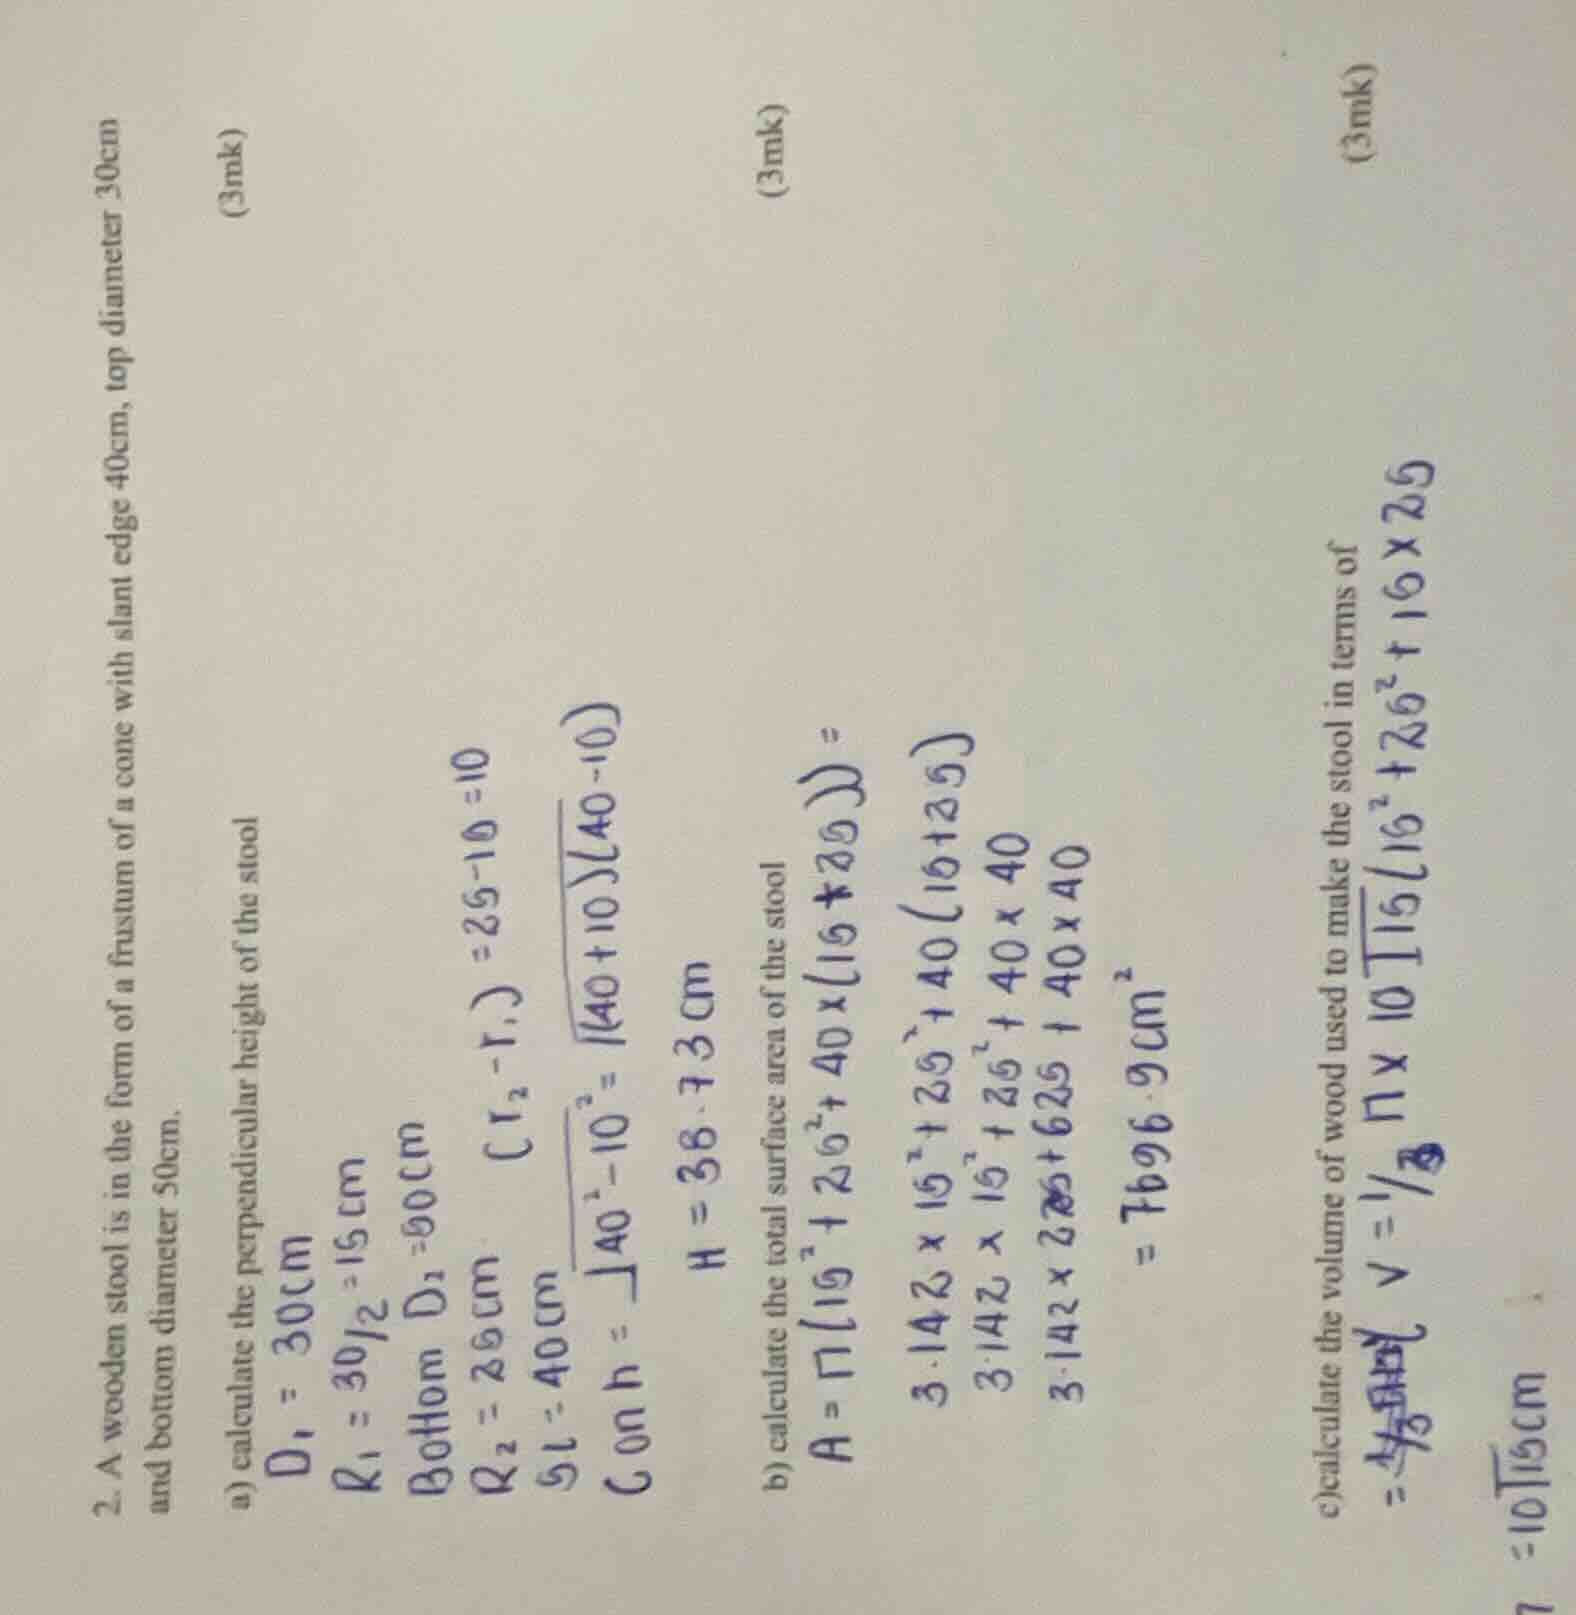 2. A wooden stool is in the form of a frustum of a cone with slant edge 40cm, top diameter 30cm
and bottom diameter 50cm.
a) calculate the perpendicular height of the stool (3mk)
D₁ = 30cm
R₁ = 30/2 = 15cm
Bottom D₂ = 50cm
R₂ = 25cm (r₂ - r₁) = 25-15 = 10
SL = 40cm
Con h = √40² - 10² = √(40+10)(40-10)
H = 38.73cm
b) calculate the total surface area of the stool (3mk)
A = π(15² + 25² + 40 × (15+25)) =
3.142 × 15² + 25² + 40(15+25)
3.142 × 15² + 25² + 40 × 40
3.142 × 225 + 625 + 40 × 40
= 7696.9cm²
c)calculate the volume of wood used to make the stool in terms of (3mk)
= V = 1/3 π × 10√15(15² + 25² + 15 × 25
= 10√15cm